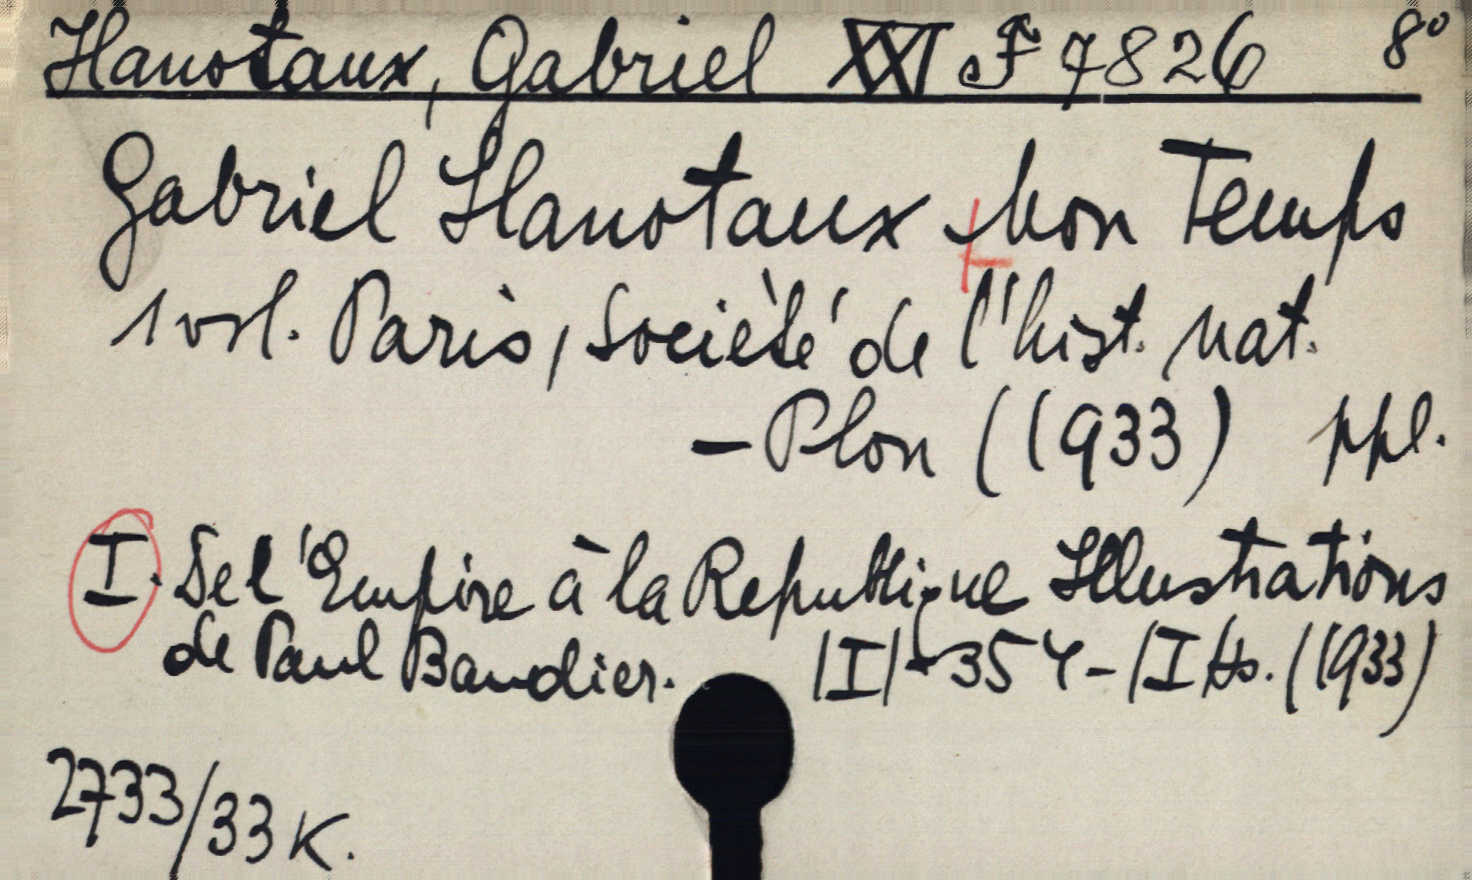 Hanotaux, Gabriel XXI F 7826 8°
Gabriel Hanotaux Mon Temps
1 vol. Paris, Socièté de l'hist. nat.
– Plon (1933) ppl.
I. De l'Empire à la Republique Illustrations
de Paul Baudier. |I|+354–|I|ts. (1933)
2733/33 K.